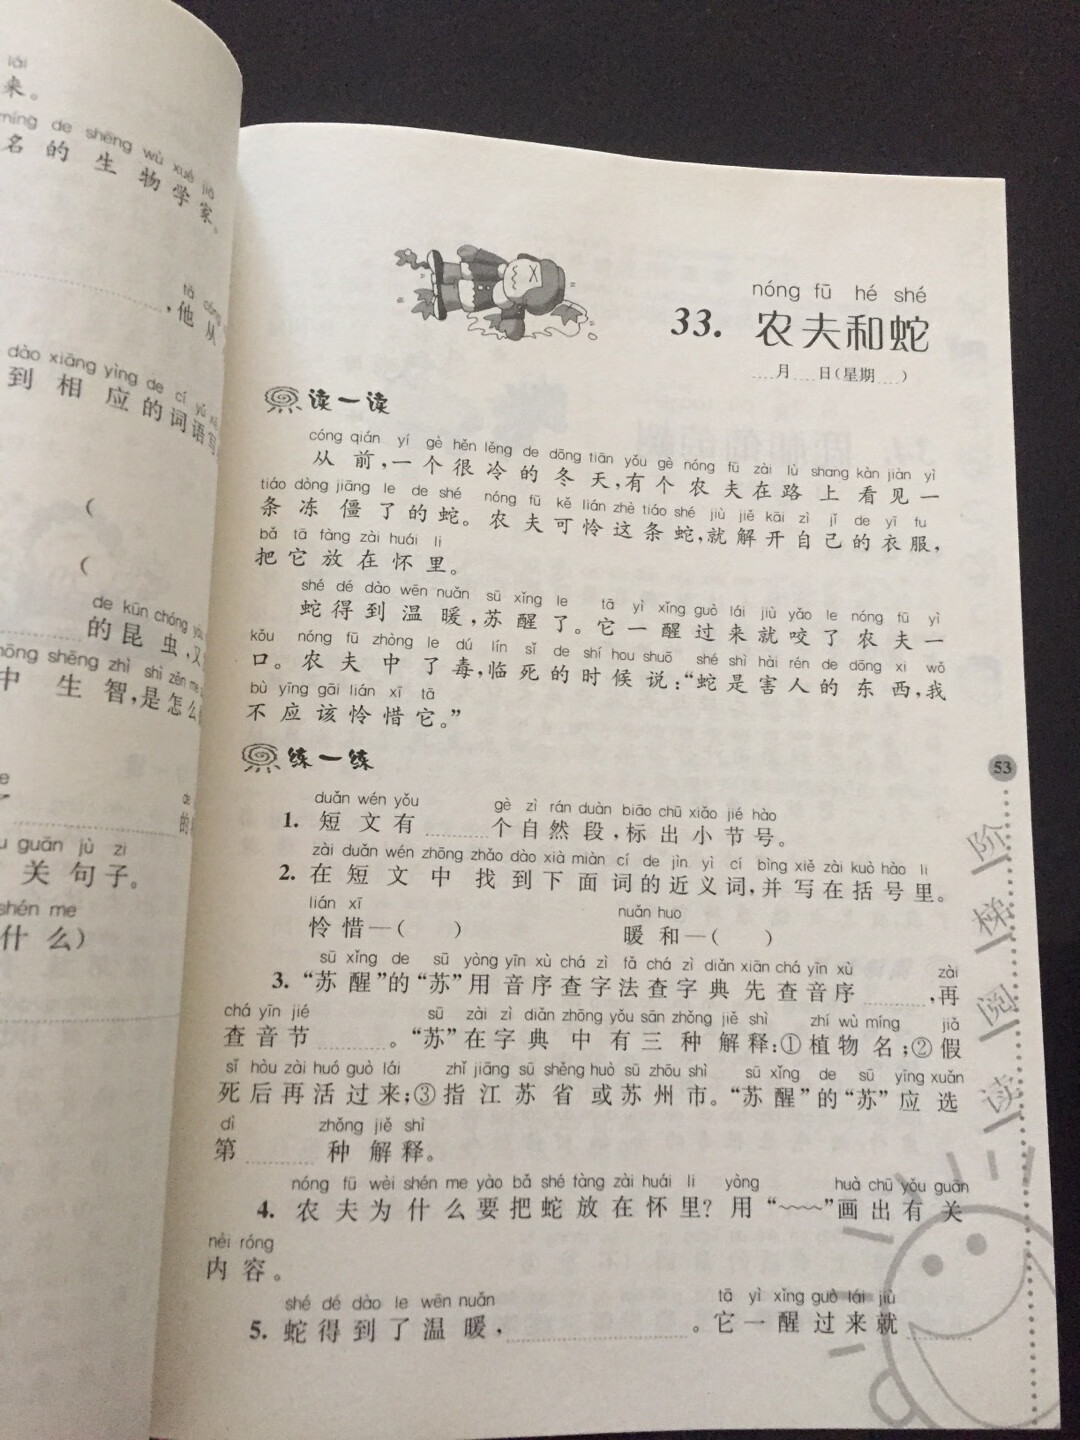 lái
来。
míng de shēng wù xué jiā
名 的 生 物 学 家。
tā cóng
,他 从
dào xiāng yìng de cí yǔ xiě
到 相 应 的 词 语 写
(
(
de kūn chóng yòu
的 昆 虫,又
zhōng shēng zhì shì zěn me
中 生 智,是 怎 么
de
的
guān jù zi
关 句 子。
shén me
什 么)
nóng fū hé shé
33. 农夫和蛇
月 日(星期 )
读一读
cóng qián yí gè hěn lěng de dōng tiān yǒu gè nóng fū zài lù shang kàn jiàn yì
从 前,一 个 很 冷 的 冬 天,有 个 农 夫 在 路 上 看 见 一
tiáo dòng jiāng le de shé nóng fū kě lián zhè tiáo shé jiù jiě kāi zì jǐ de yī fu
条 冻 僵 了 的 蛇。农 夫 可 怜 这 条 蛇,就 解 开 自 己 的 衣 服,
bǎ tā fàng zài huái li
把 它 放 在 怀 里。
shé dé dào wēn nuǎn sū xǐng le tā yì xǐng guò lái jiù yǎo le nóng fū yì
蛇 得 到 温 暖,苏 醒 了。它 一 醒 过 来 就 咬 了 农 夫 一
kǒu nóng fū zhòng le dú lín sǐ de shí hou shuō shé shì hài rén de dōng xi wǒ
口。农 夫 中 了 毒,临 死 的 时 候 说:“蛇 是 害 人 的 东 西,我
bù yīng gāi lián xī tā
不 应 该 怜 惜 它。”
练一练
duǎn wén yǒu gè zì rán duàn biāo chū xiǎo jié hào
1. 短 文 有 个 自 然 段,标 出 小 节 号。
zài duǎn wén zhōng zhǎo dào xià miàn cí de jìn yì cí bìng xiě zài kuò hào li
2. 在 短 文 中 找 到 下 面 词 的 近 义 词,并 写 在 括 号 里。
lián xī nuǎn huo
怜 惜—( ) 暖 和—( )
sū xǐng de sū yòng yīn xù chá zì fǎ chá zì diǎn xiān chá yīn xù zài
3. “苏 醒”的“苏”用 音 序 查 字 法 查 字 典 先 查 音 序 ,再
chá yīn jié sū zài zì diǎn zhōng yǒu sān zhǒng jiě shì zhí wù míng jiǎ
查 音 节 。“苏”在 字 典 中 有 三 种 解 释:①植 物 名;②假
sǐ hòu zài huó guò lái zhǐ jiāng sū shěng huò sū zhōu shì sū xǐng de sū yīng xuǎn
死 后 再 活 过 来;③指 江 苏 省 或 苏 州 市。“苏 醒”的“苏”应 选
dì zhǒng jiě shì
第 种 解 释。
nóng fū wèi shén me yào bǎ shé fàng zài huái li yòng huà chū yǒu guān
4. 农 夫 为 什 么 要 把 蛇 放 在 怀 里?用“~~~~”画 出 有 关
nèi róng
内 容。
shé dé dào le wēn nuǎn tā yì xǐng guò lái jiù
5. 蛇 得 到 了 温 暖, 。它 一 醒 过 来 就
53
阶梯阅读